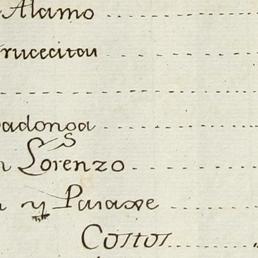 Alamo
rucecitas
adonga
n Lorenzo
y Paraxe
Costos